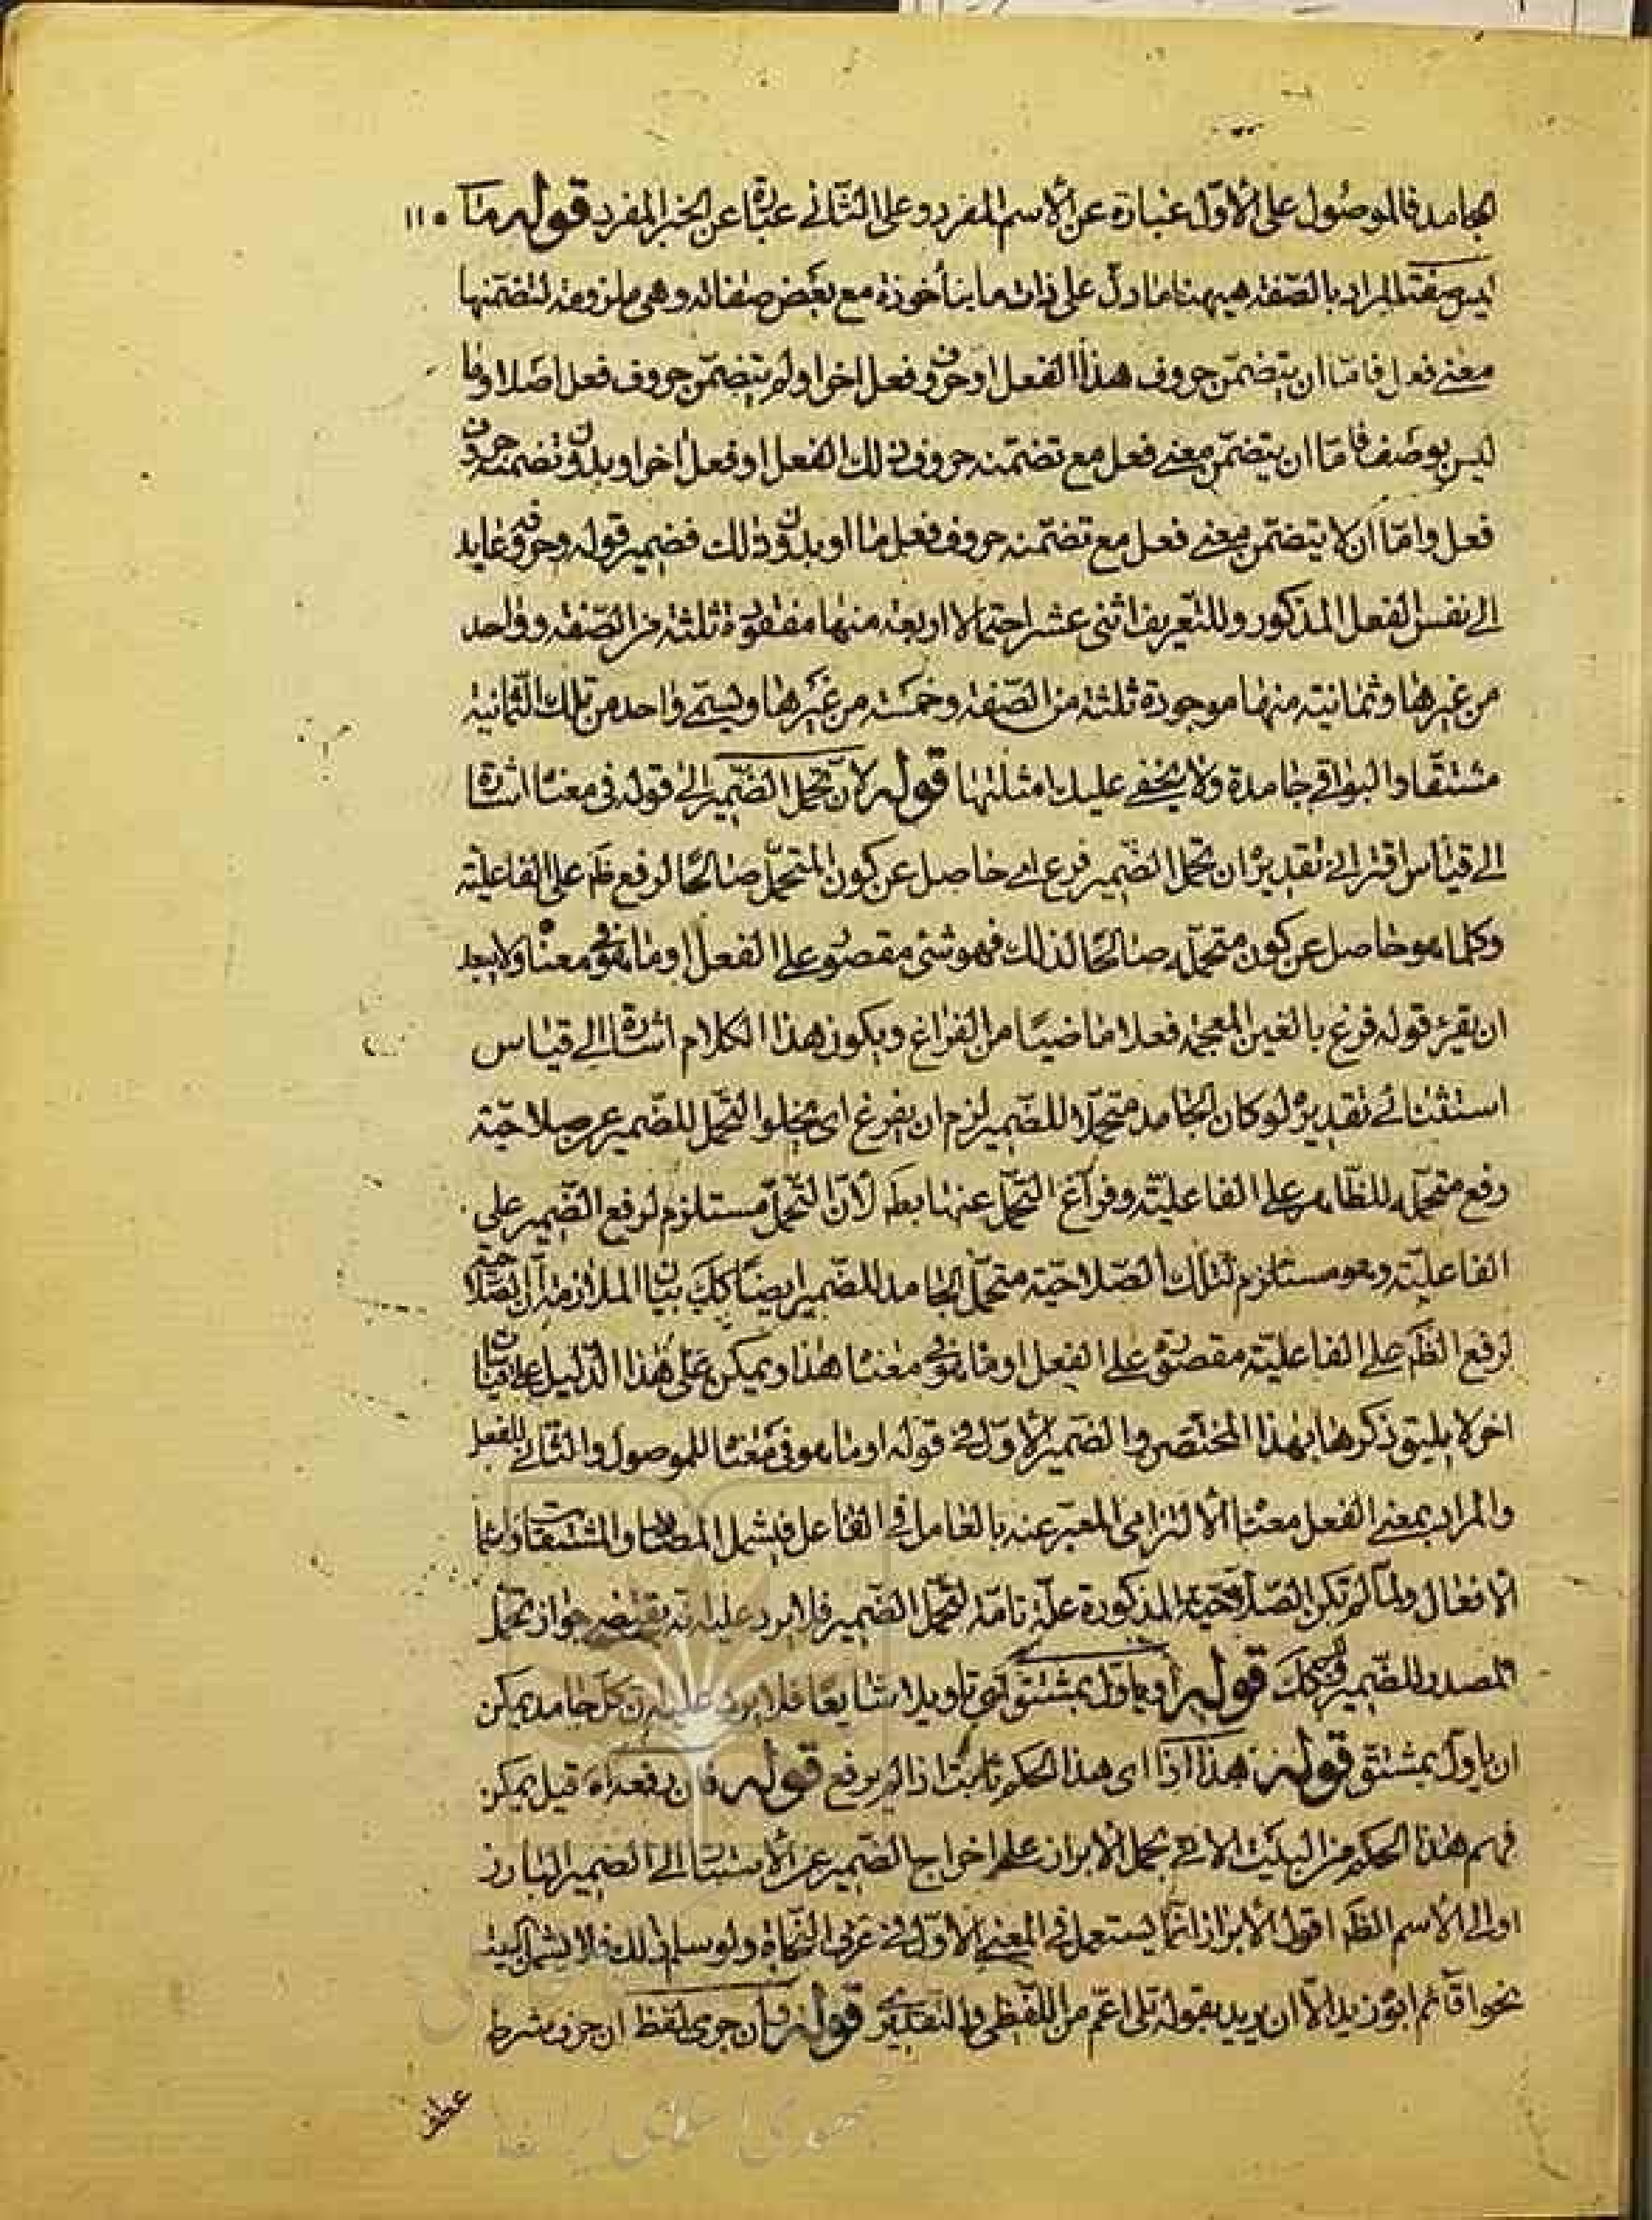 الجامد فالموصول على الأوّل عبارة عن الاسم المفرد وعلى الثّاني عبارة عن الخبر المفرد قوله ما ١١٠
ليس صفة المراد بالصّفة هيهنا ما دلّ على ذات ما مأخوذة مع بعض صفاته وهي ملزومة لتضمّنها
معنى فعل فامّا ان يتضمّن حروف هذا الفعل او حروف فعل اخر او لم يتضمّن حروف فعل اصلا وما
ليس بوصف فامّا ان يتضمّن معنى فعل مع تضمّنه حروف ذلك الفعل او فعل اخر او بدون تضمّنه حروف
فعل وامّا ان لا يتضمّن معنى فعل مع تضمّنه حروف فعل ما او بدون ذلك فضمير قوله وحروفه عايد
الى نفس الفعل المذكور وللتّعريف اثنى عشر احتمالا اربعة منها مفقودة ثلثة من الصّفة وواحد
من غيرها وثمانية منها موجودة ثلثة من الصّفة وخمسة من غيرها ويسمّى واحد من تلك الثّمانية
مشتقّا والبواقي جامدة ولا يخفى عليك امثلتها قوله لانّ تحمّل الضّمير الى قوله في معناه اشارة
الى قياس اقتراني تقديره ان تحمّل الضّمير فرع اي حاصل عن كون المتحمّل صالحا لرفع ظم على الفاعليّة
وكلما هو حاصل عن كون متحمّله صالحا لذلك فهو شئ مقصور على الفعل او ما هو في معناه ولا يبعد
ان يقرء قوله فرغ بالغين المعجمة فعلا ماضيا من الفراغ ويكون هذا الكلام اشارة الى قياس
استثنائي تقديره لو كان الجامد متحمّلا للضّمير لزم ان يفرغ اي يخلو التحمّل للضّمير عن صلاحيّة
رفع متحمّله للظّاهر على الفاعليّة وفراغ التحمّل عنها بط لأنّ التحمّل مستلزم لرفع الضّمير على
الفاعليّة وهو مستلزم لتلك الصّلاحيّة متحمّل الجامد للضّمير ايضا كك بيان الملازمة انّ الصّلاحيّة
لرفع الظم على الفاعليّة مقصورة على الفعل او ما هو في معناه هذا ويمكن على هذا الدّليل
اخر لا يليق ذكرها بهذا المختصر والضّمير الأوّل في قوله او ما هو في معناه للموصول والثّاني للفعل
والمراد بمعنى الفعل معناه الالتزامي المعبّر عنه بالعامل في الفاعل فيشمل المصادر والمشتقات واسماء
الافعال ولمّا لم تكن الصّلاحية المذكورة علّة تامّة لتحمّل الضّمير فلا يرد عليه انّه يقتضي جواز تحمّل
المصدر للضّمير وليس كك قوله او يأوّل بمشتق اي تأويلا شايعا فلا يرد عليه ان كلّ جامد يمكن
ان يأوّل بمشتق قوله هذا اذا اي هذا الحكم ثابت اذا لم يرفع قوله فان رفعه اه قيل يمكن
فهم هذا الحكم من البيت الاتي بحمل الابراز على اخراج الضّمير عن الاستتار الى الضّمير البارز
او الى الاسم الظم اقول الابراز انّما يستعمل في المعنى الأوّل في عرف النّحاة ولو سلم ذلك فلا يشمل البيت
نحو اقائم ابو زيد الّا ان يريد بقوله تلى اعمّ من اللّفظي والتّقديري قوله وان جرى لفظ ان حرف شرط
عطف